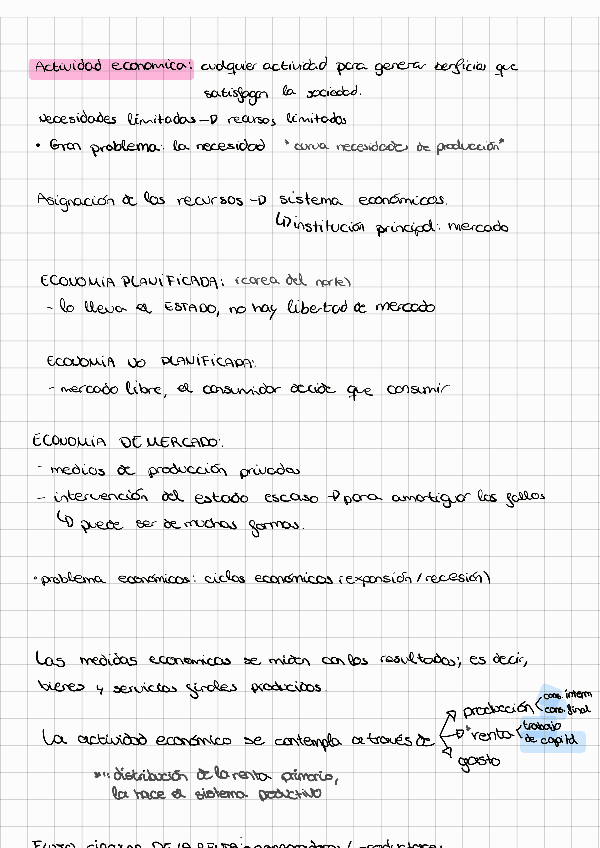 Actividad economica: cualquier actividad para generar berficios que
satisfagan la sociedad.
Necesidades limitadas → recursos limitados
• Gran problema: la necesidad "curva necesidades de producción"
Asignación de los recursos → sistema económicos.
↳ institución principal: mercado
ECONOMIA PLANIFICADA: (corea del norte)
- lo lleva el ESTADO, no hay libertad de mercado
ECONOMIA NO PLANIFICADA:
- mercado libre, el consumidor decide que consumir
ECONOMIA DE MERCADO:
- medios de producción privados
- intervención del estado escaso → para amortiguar los fallos
↳ puede ser de muchas formas.
• problema económicos: ciclos económicos (expansión / recesión)
Las medidas economicas se miden con los resultados; es decir,
bienes y servicios finales producidos.
La actividad económico se contempla a través de
producción cons. interm
cons. final
* renta trabajo
de capital
gasto
*: distribución de la renta primario,
la hace el sistema productivo
DE LA RENTA: